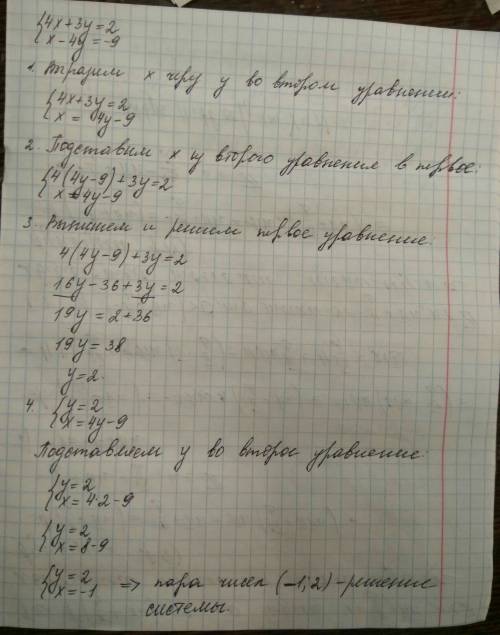 {4x+3y=2
{x-4y=-9
1. Выразим x через y во втором уравнении:
{4x+3y=2
{x = 4y-9
2. Подставим x из второго уравнения в первое:
{4(4y-9)+3y=2
{x=4y-9
3. Выпишем и решаем первое уравнение:
4(4y-9)+3y=2
16y-36+3y=2
19y=2+36
19y=38
y=2.
4. {y=2
{x=4y-9
Подставляем y во второе уравнение:
{y=2
{x=4·2-9
{y=2
{x=8-9
{y=2
{x=-1 => пара чисел (-1;2)-решение
системы.